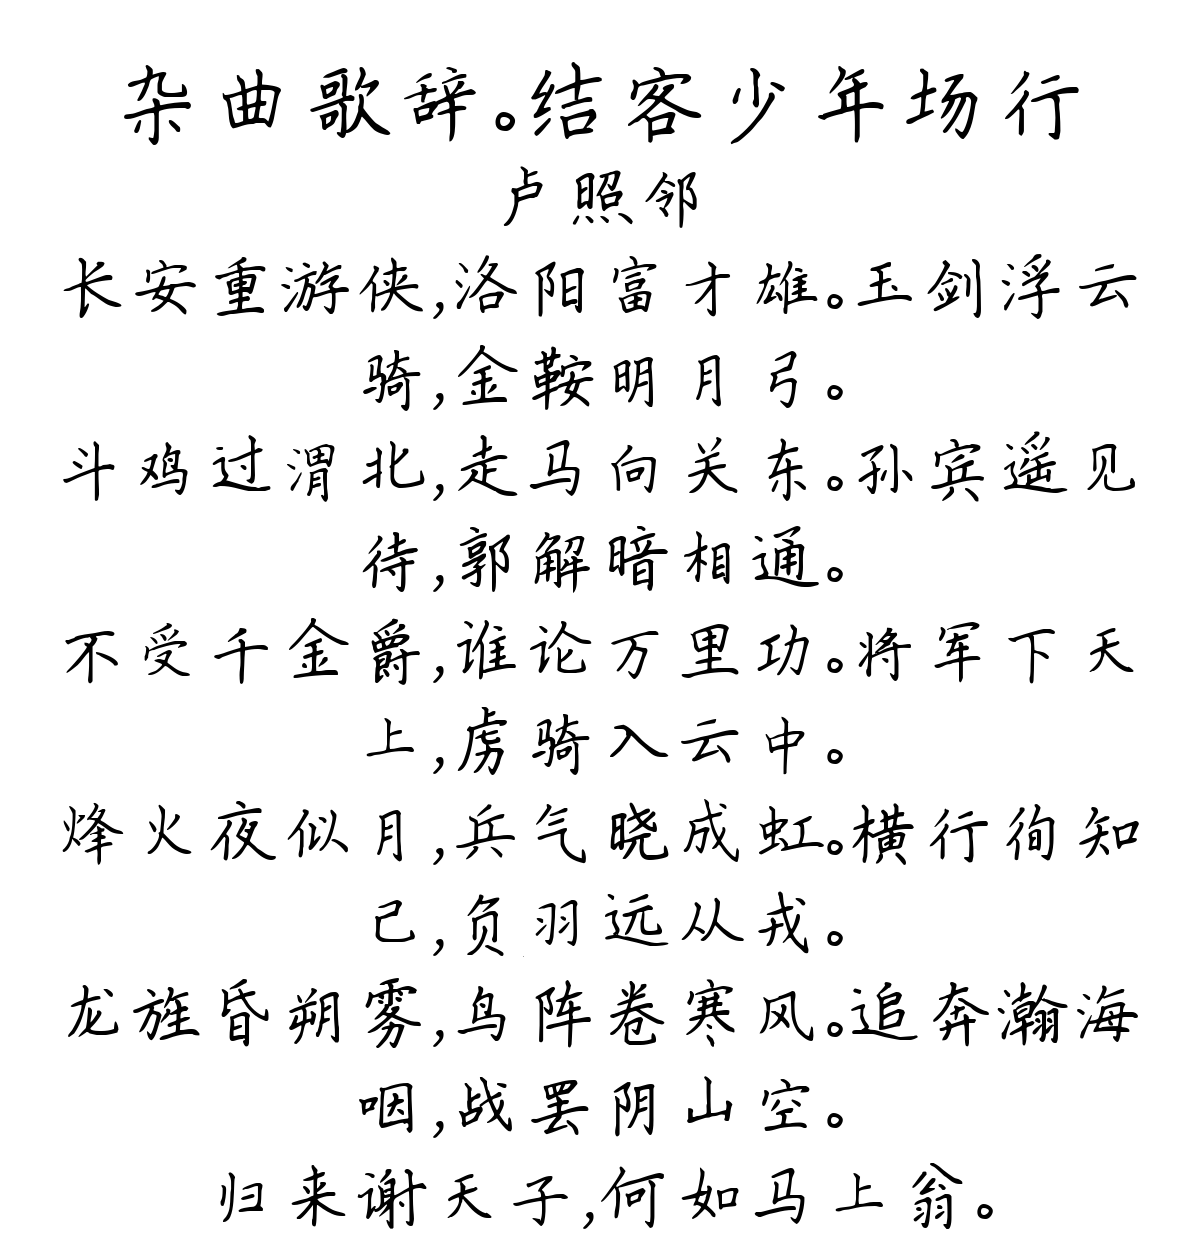 杂曲歌辞。结客少年场行
卢照邻
长安重游侠,洛阳富才雄。玉剑浮云
骑,金鞍明月弓。
斗鸡过渭北,走马向关东。孙宾遥见
待,郭解暗相通。
不受千金爵,谁论万里功。将军下天
上,虏骑入云中。
烽火夜似月,兵气晓成虹。横行徇知
己,负羽远从戎。
龙旌昏朔雾,鸟阵卷寒风。追奔瀚海
咽,战罢阴山空。
归来谢天子,何如马上翁。